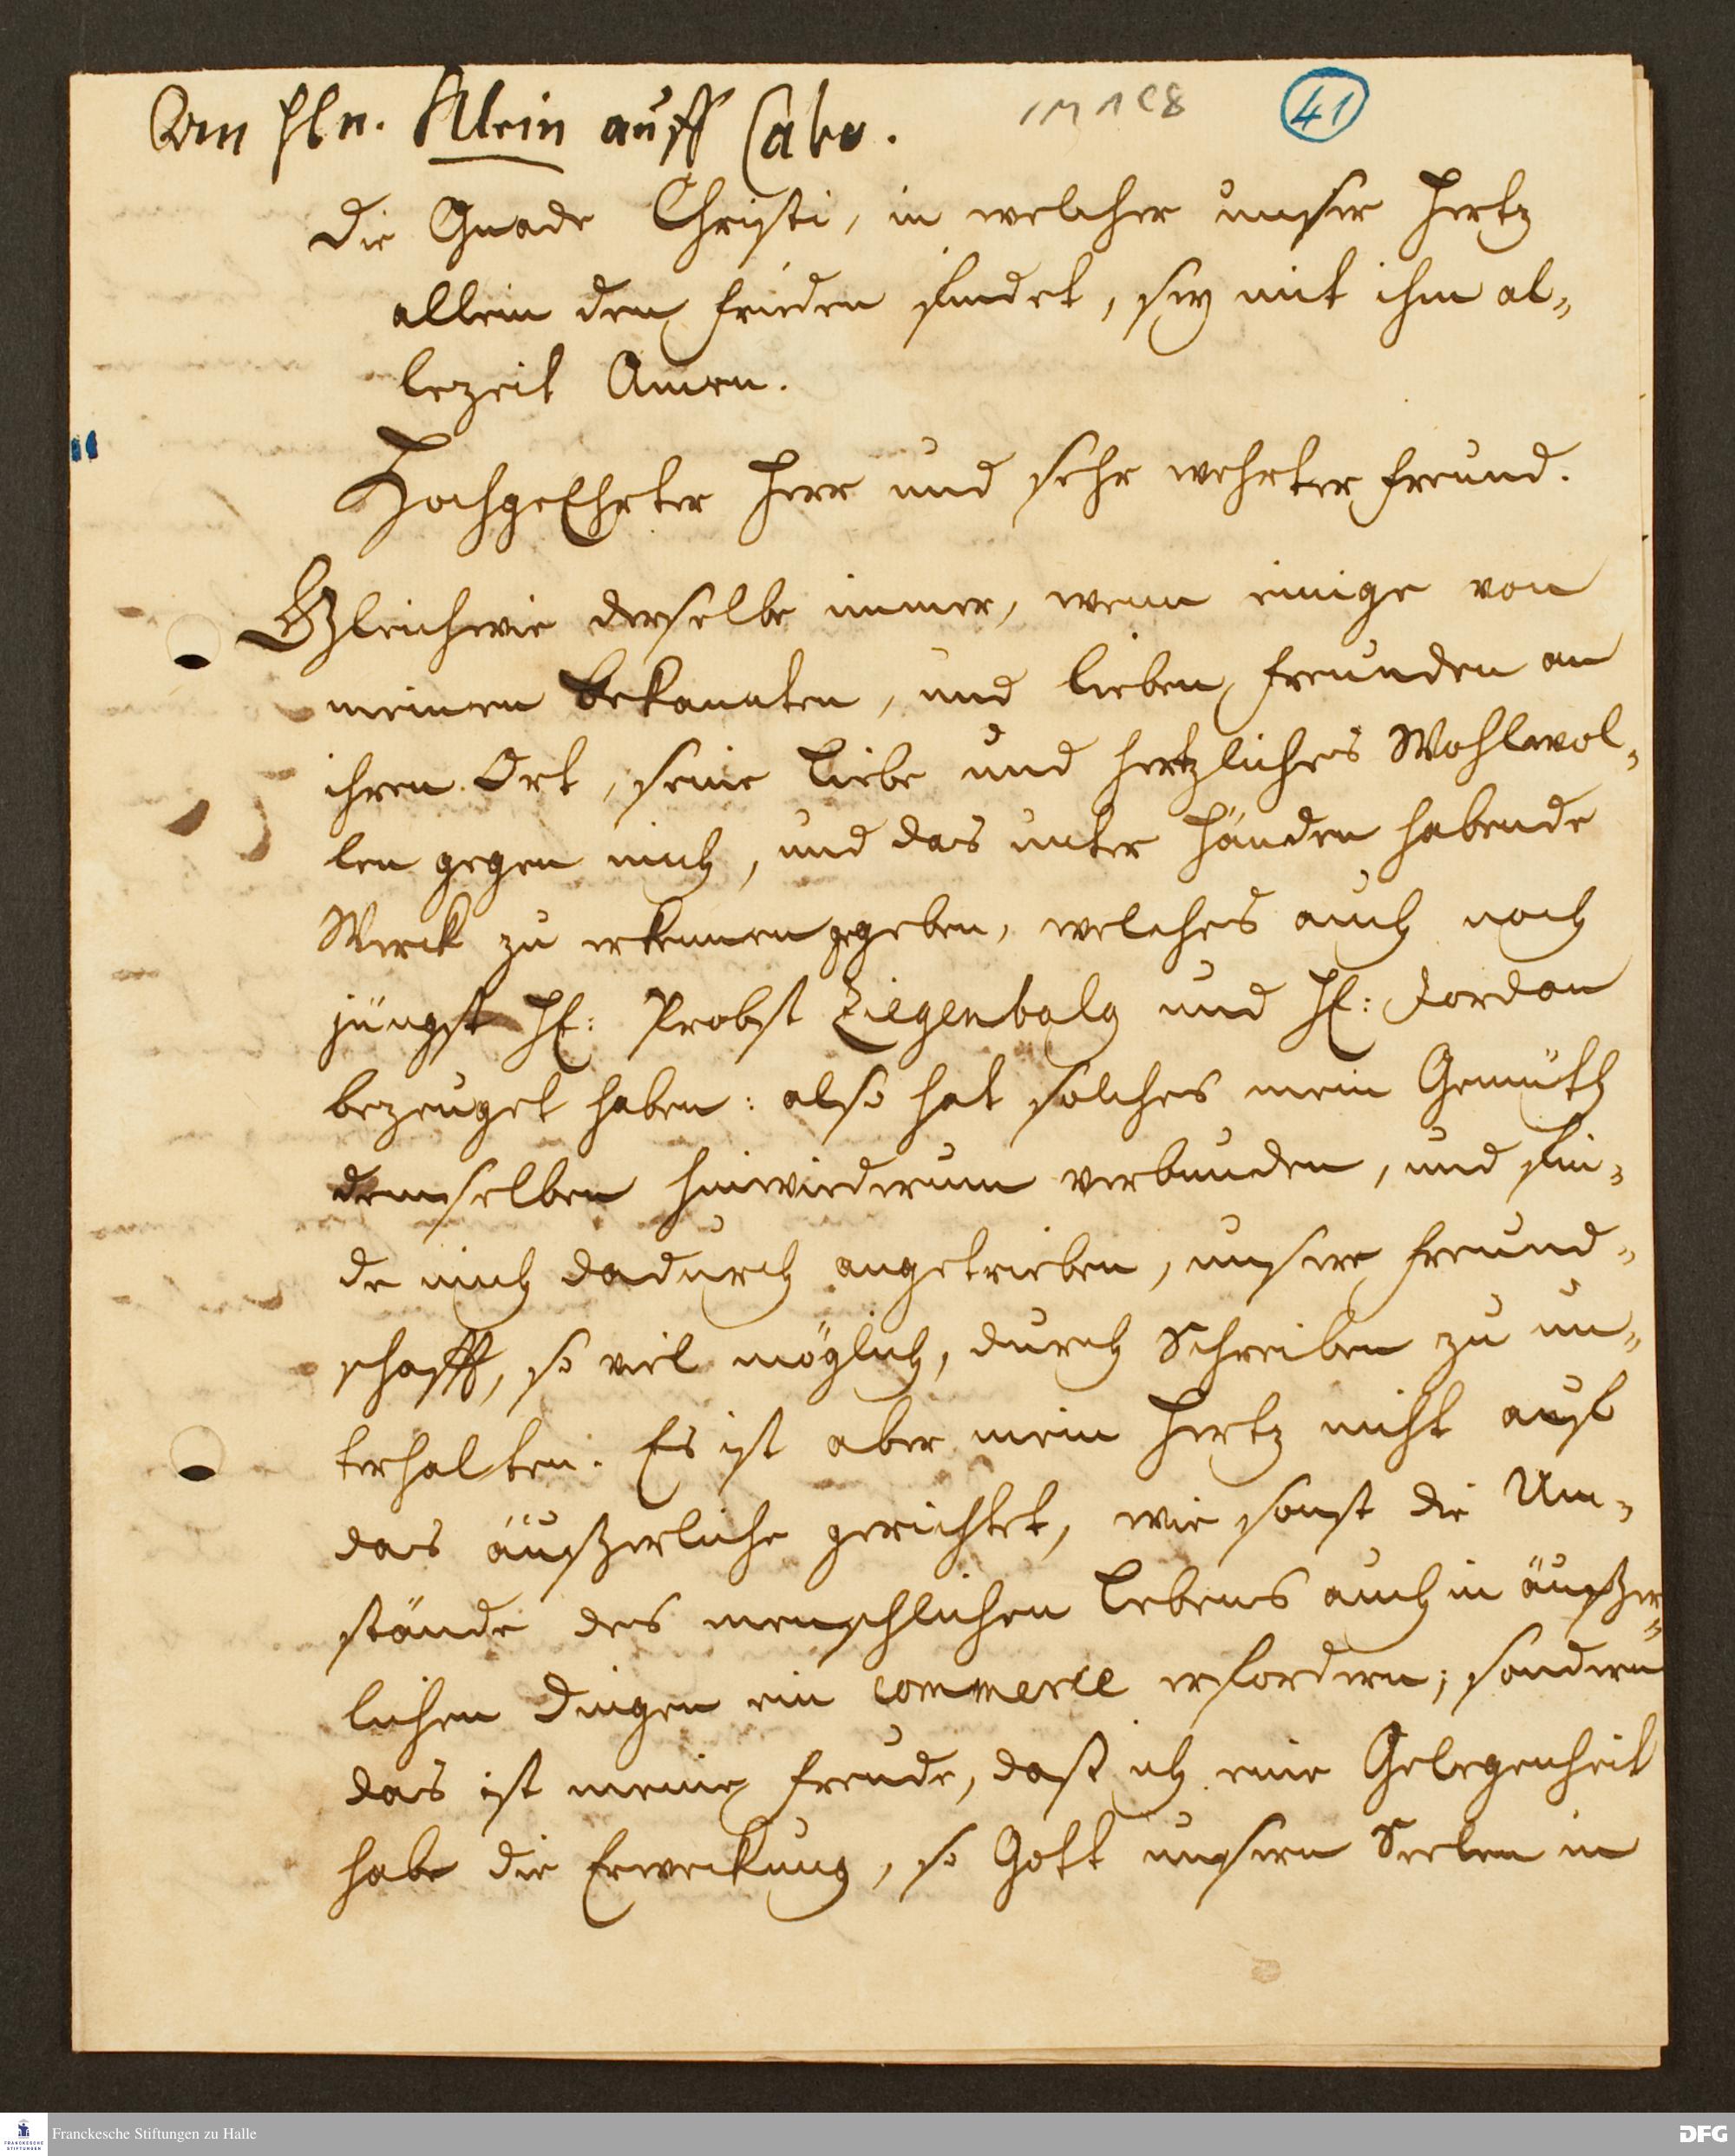 An Hln. Klein auff Cabo.
1 M 1 C 8
41
Die Gnade Christi, in welcher unser Hertz
allein den Frieden findet, sey mit ihm al-
lezeit Amen.
HochgeEhrter Herr und sehr wehrter Freund.
Gleichwie derselbe immer, wenn einige von
meinen bekannten, und lieben Freunden an
ihren Ort, seine Liebe und hertzliches Wohlwol-
len gegen mich, und das unter Händen habende
Werck zu erkennen gegeben, welches auch noch
jüngst H: Probst Ziegenbalg und H: Jordan
bezeuget haben: also hat solches mein Gemüth
demselben hinwiederum verbunden, und fin-
de mich dadurch angetrieben, unsere Freund-
schafft, so viel möglich, durch Schreiben zu un-
terhalten. Es ist aber mein Hertz nicht auf
das äußerliche gerichtet, wie sonst die Um-
stände des menschlichen Lebens auch in äußer-
lichen Dingen ein commerce erfordern; sondern
das ist meine Freude, daß ich eine Gelegenheit
habe die Erweckung, so Gott unsern Seelen in
FRANCKESCHE STIFTUNGEN
Franckesche Stiftungen zu Halle
DFG